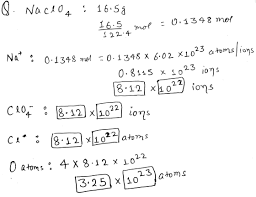 Q. NaClO4 : 16.5g
16.5/122.4 mol = 0.1348 mol
Na+ : 0.1348 mol = 0.1348 x 6.02 x 10^23 atoms/ions
0.8115 x 10^23 ions
8.12 x 10^22 ions
ClO4- : 8.12 x 10^22 ions
Cl : 8.12 x 10^22 atoms
O atoms : 4 x 8.12 x 10^22
3.25 x 10^23 atoms